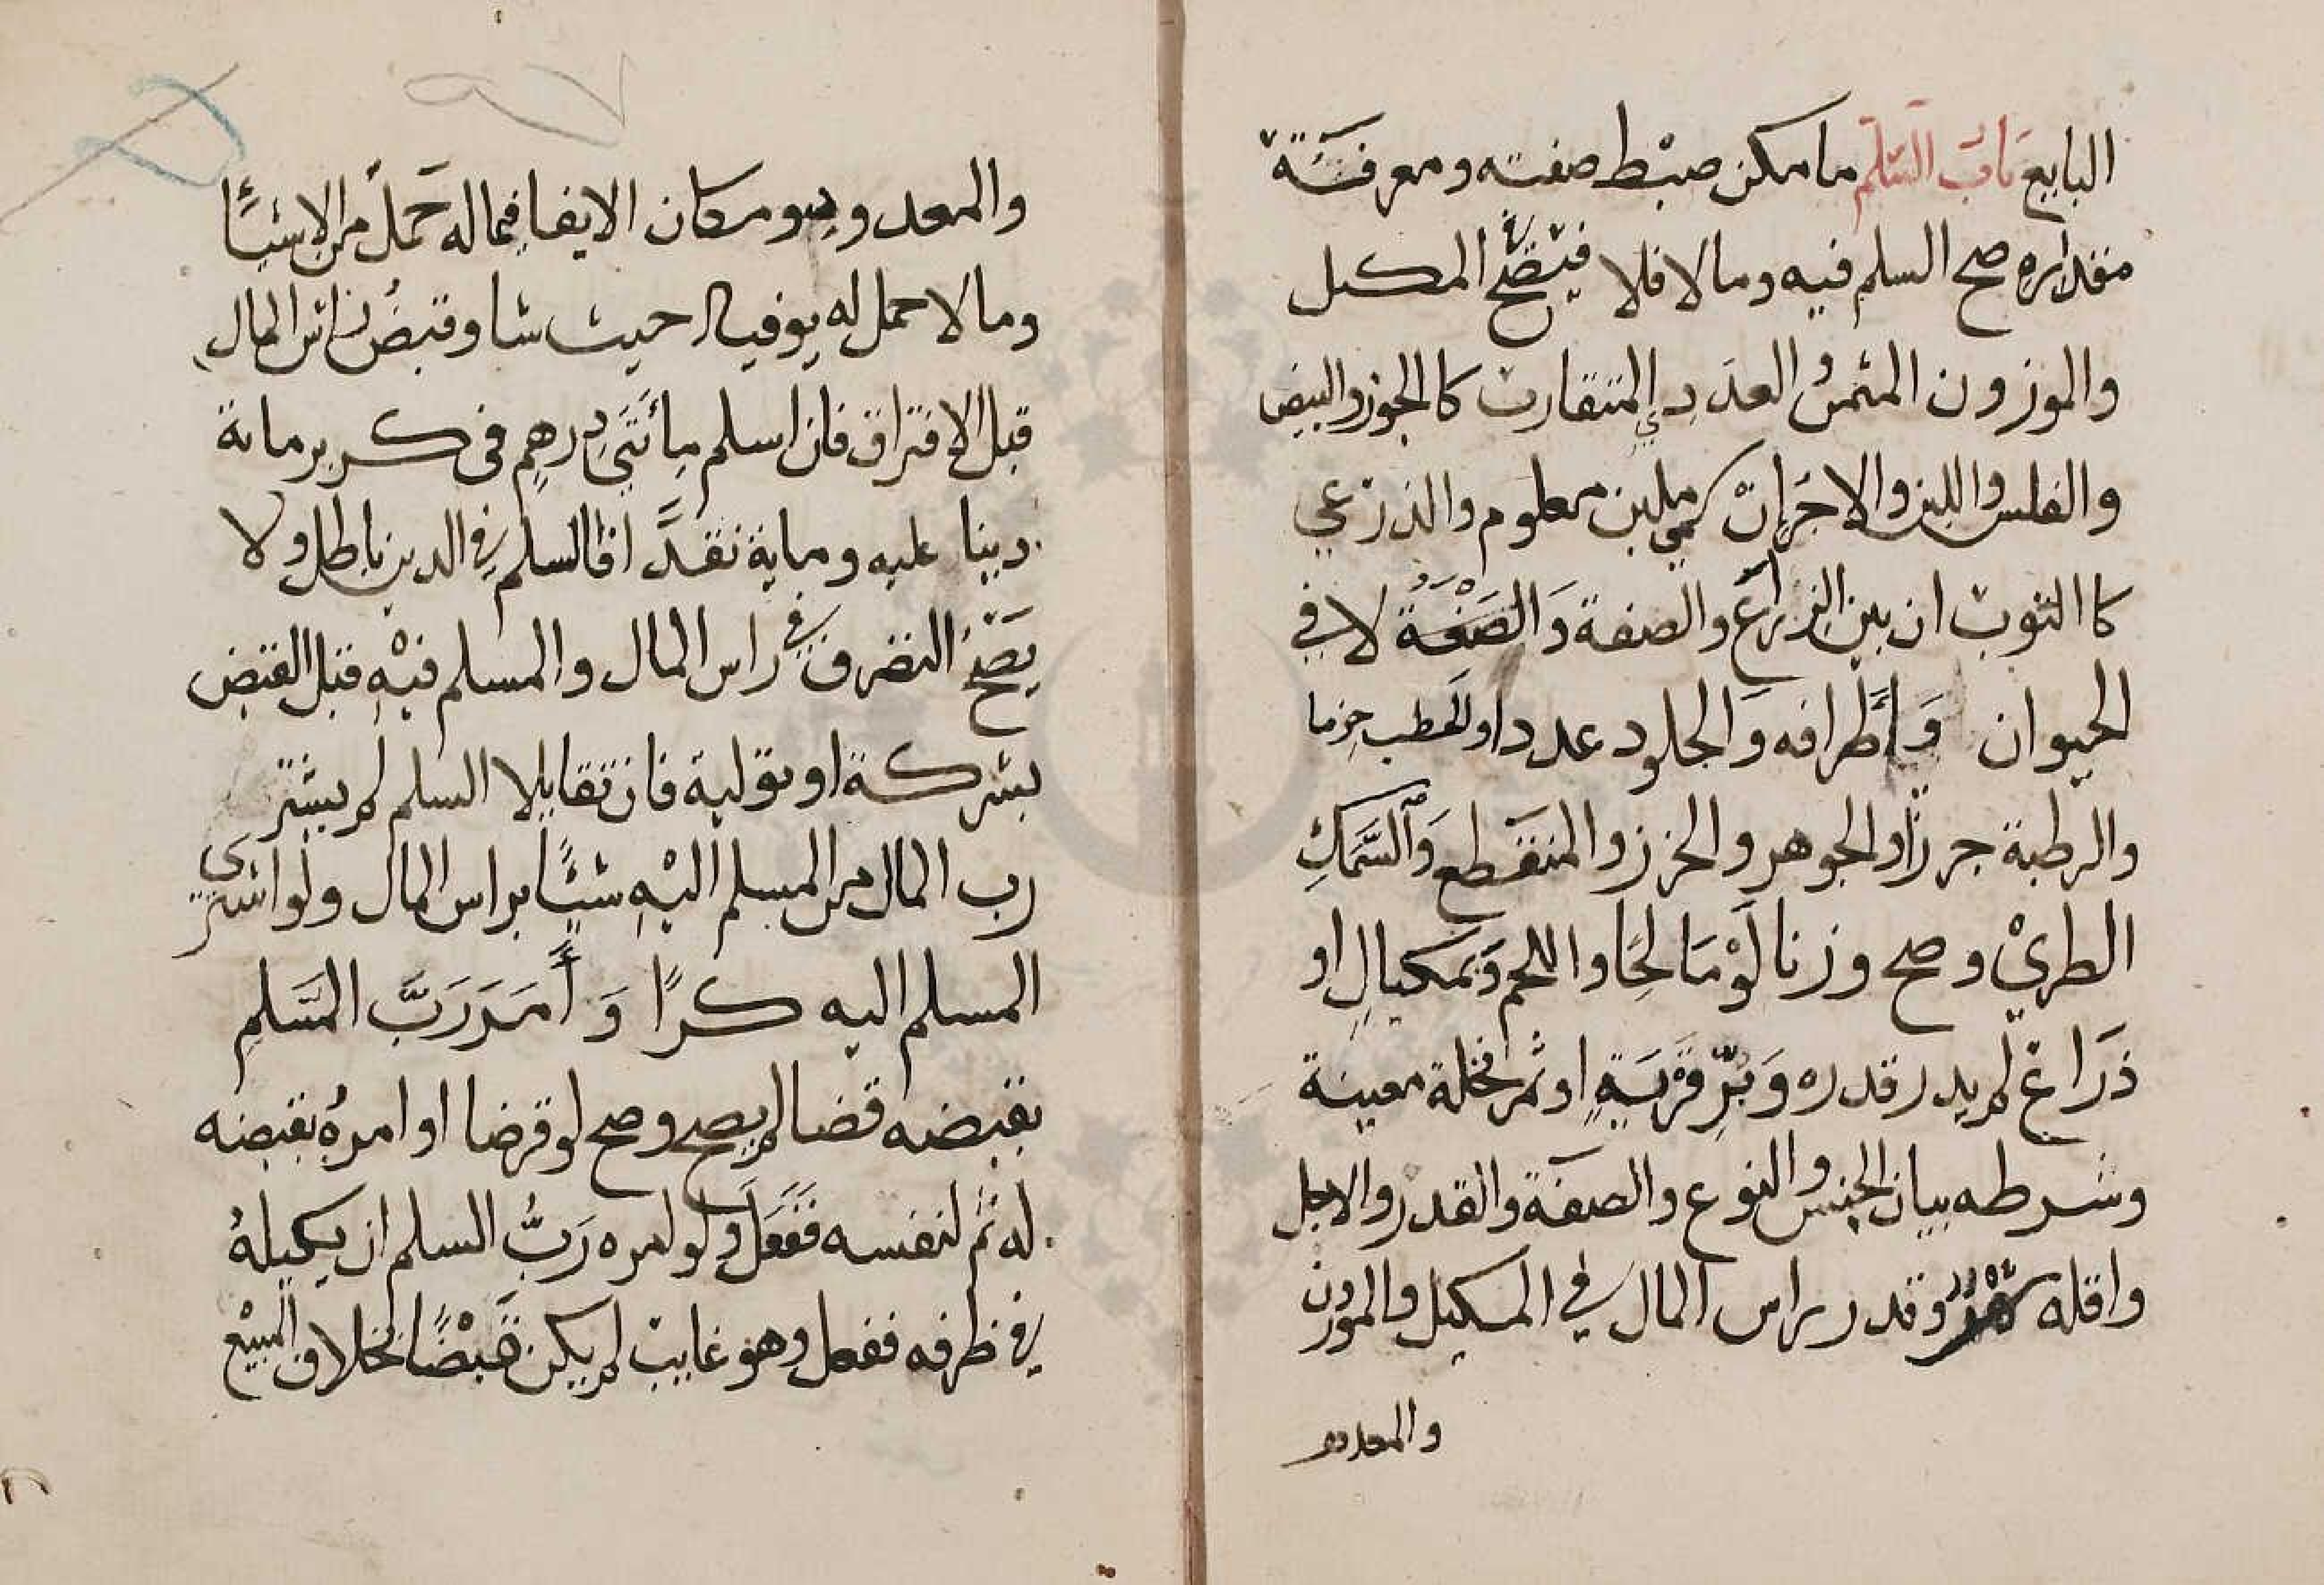 البايع باب السلم ما مكن ضبط صفته ومعرفة
مقداره صح السلم فيه وما لا فلا فيصح في المكيل
والموزون المثمن والعددي المتقارب كالجوز والبيض
والفلس واللبن والاجر ان سمي ملبن معلوم والذرعي
كالثوب ان بين الذراع والصفة والصنعة لا في
الحيوان وأطرافه والجلود عددا والحطب حزما
والرطبة جرزا والجوهر والخرز والمنقطع والسمك
الطري وصح وزنا لو مالحا واللحم وبمكيال او
ذراع لم يدر قدره وبر قرية او ثمر نخلة معينة
وشرطه بيان الجنس والنوع والصفة والقدر والاجل
واقله شهر وقدر راس المال في المكيل والموزون
والمعدود
والمعدود ومكان الايفا فيما له حمل من الاشيأ
وما لا حمل له يوفيه حيث شا وقبض رأس المال
قبل الافتراق فان اسلم مأتي درهم في كر بر ماية
دينا عليه وماية نقدا فالسلم في الدين باطل ولا
يصح التصرف في راس المال والمسلم فيه قبل القبض
بشركة او تولية فان تقايلا السلم لم يشتر
رب المال من المسلم اليه شيئا براس المال ولو اشترى
المسلم اليه كرا وأمر رب السلم
بقبضه قضا لم يصح وصح لو قرضا او امره بقبضه
له ثم لنفسه ففعل ولو امره رب السلم ان يكيله
في ظرفه ففعل وهو غايب لم يكن قبضا بخلاف البيع